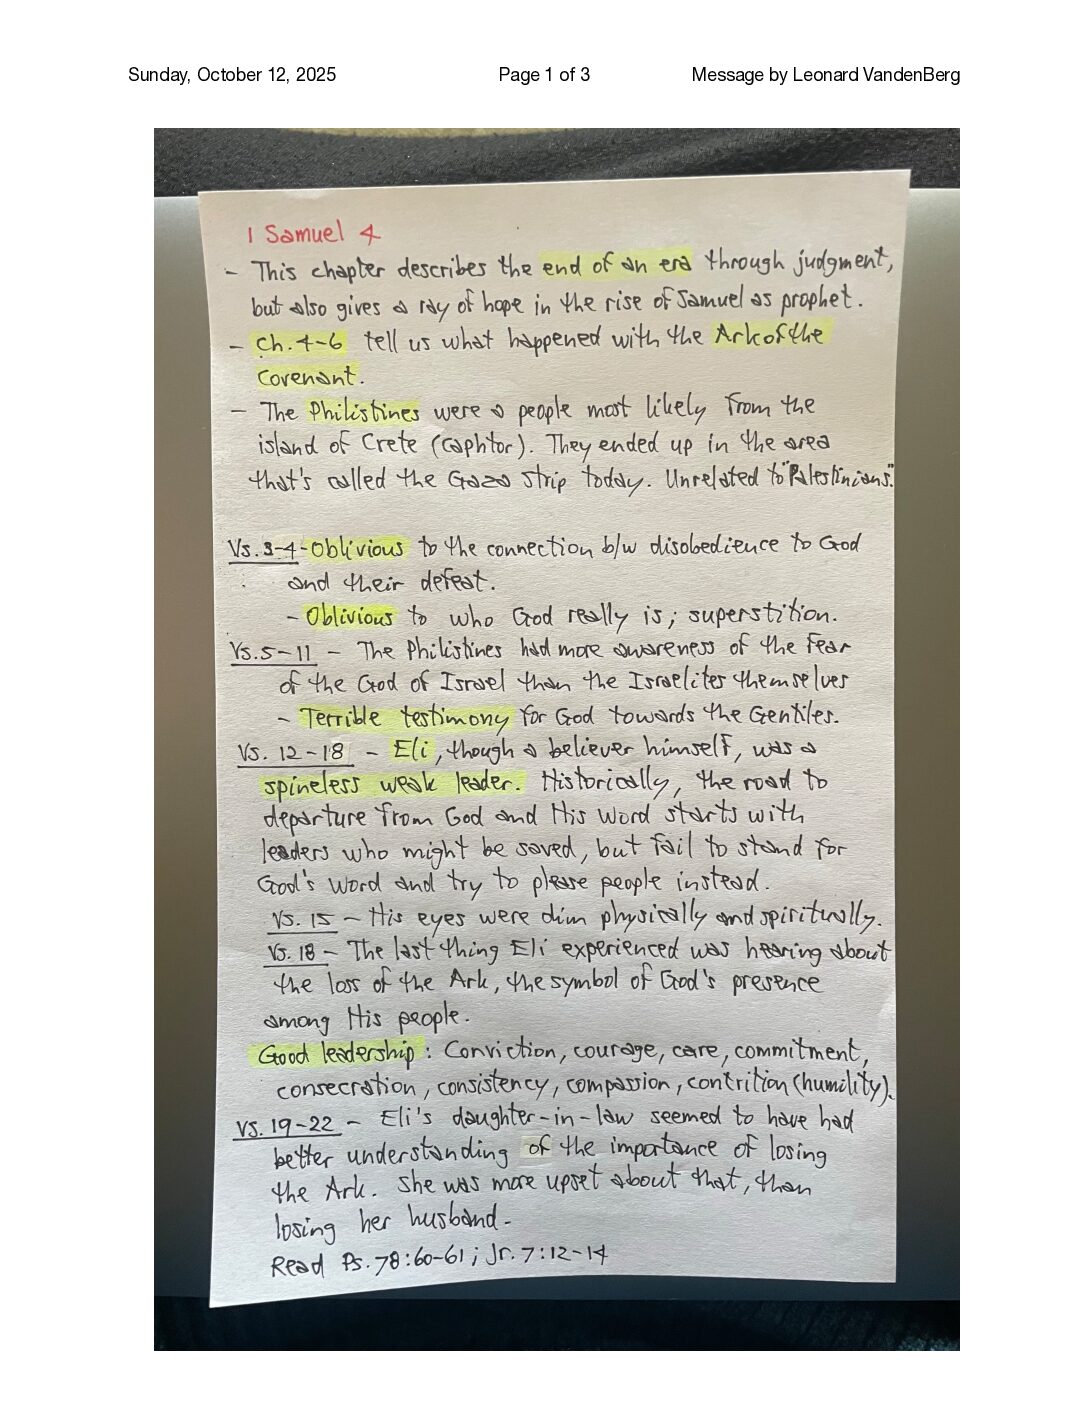 Sunday, October 12, 2025 Page 1 of 3 Message by Leonard VandenBerg
1 Samuel 4
- This chapter describes the end of an era through judgment,
but also gives a ray of hope in the rise of Samuel as prophet.
- Ch. 4-6 tell us what happened with the Ark of the
Covenant.
- The Philistines were a people most likely from the
island of Crete (Caphtor). They ended up in the area
that's called the Gaza strip today. Unrelated to "Palestinians".
Vs. 3-4 - Oblivious to the connection b/w disobedience to God
and their defeat.
- Oblivious to who God really is; superstition.
Vs. 5-11 - The Philistines had more awareness of the fear
of the God of Israel than the Israelites themselves
- Terrible testimony for God towards the Gentiles.
Vs. 12-18 - Eli, though a believer himself, was a
spineless weak leader. Historically, the road to
departure from God and His Word starts with
leaders who might be saved, but fail to stand for
God's Word and try to please people instead.
Vs. 15 - His eyes were dim physically and spiritually.
Vs. 18 - The last thing Eli experienced was hearing about
the loss of the Ark, the symbol of God's presence
among His people.
Good leadership: Conviction, courage, care, commitment,
consecration, consistency, compassion, contrition (humility).
Vs. 19-22 - Eli's daughter-in-law seemed to have had
better understanding of the importance of losing
the Ark. She was more upset about that, than
losing her husband.
Read Ps. 78:60-61; Jr. 7:12-14